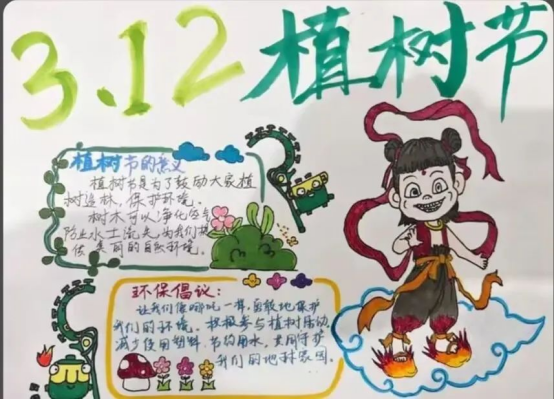 3.12 植树节
植树节的意义
植树节是为了鼓励大家植
树造林，保护环境。
树木可以净化空气
防止水土流失，为我们提
供美丽的自然环境。
环保倡议：
让我们像哪吒一样，勇敢地保护
我们的环境。积极参与植树活动
减少使用塑料，节约用水，共同守护
我们的地球家园。